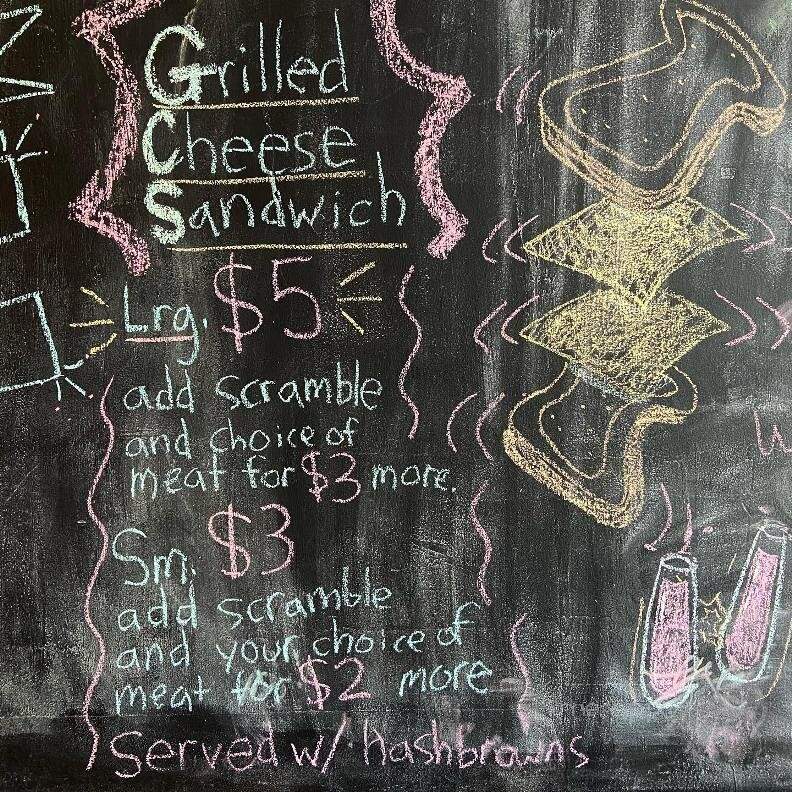 Grilled
Cheese
Sandwich
Lrg. $5
add scramble
and choice of
meat for $3 more.
Sm. $3
add scramble
and your choice of
meat for $2 more
Served w/ Hashbrowns